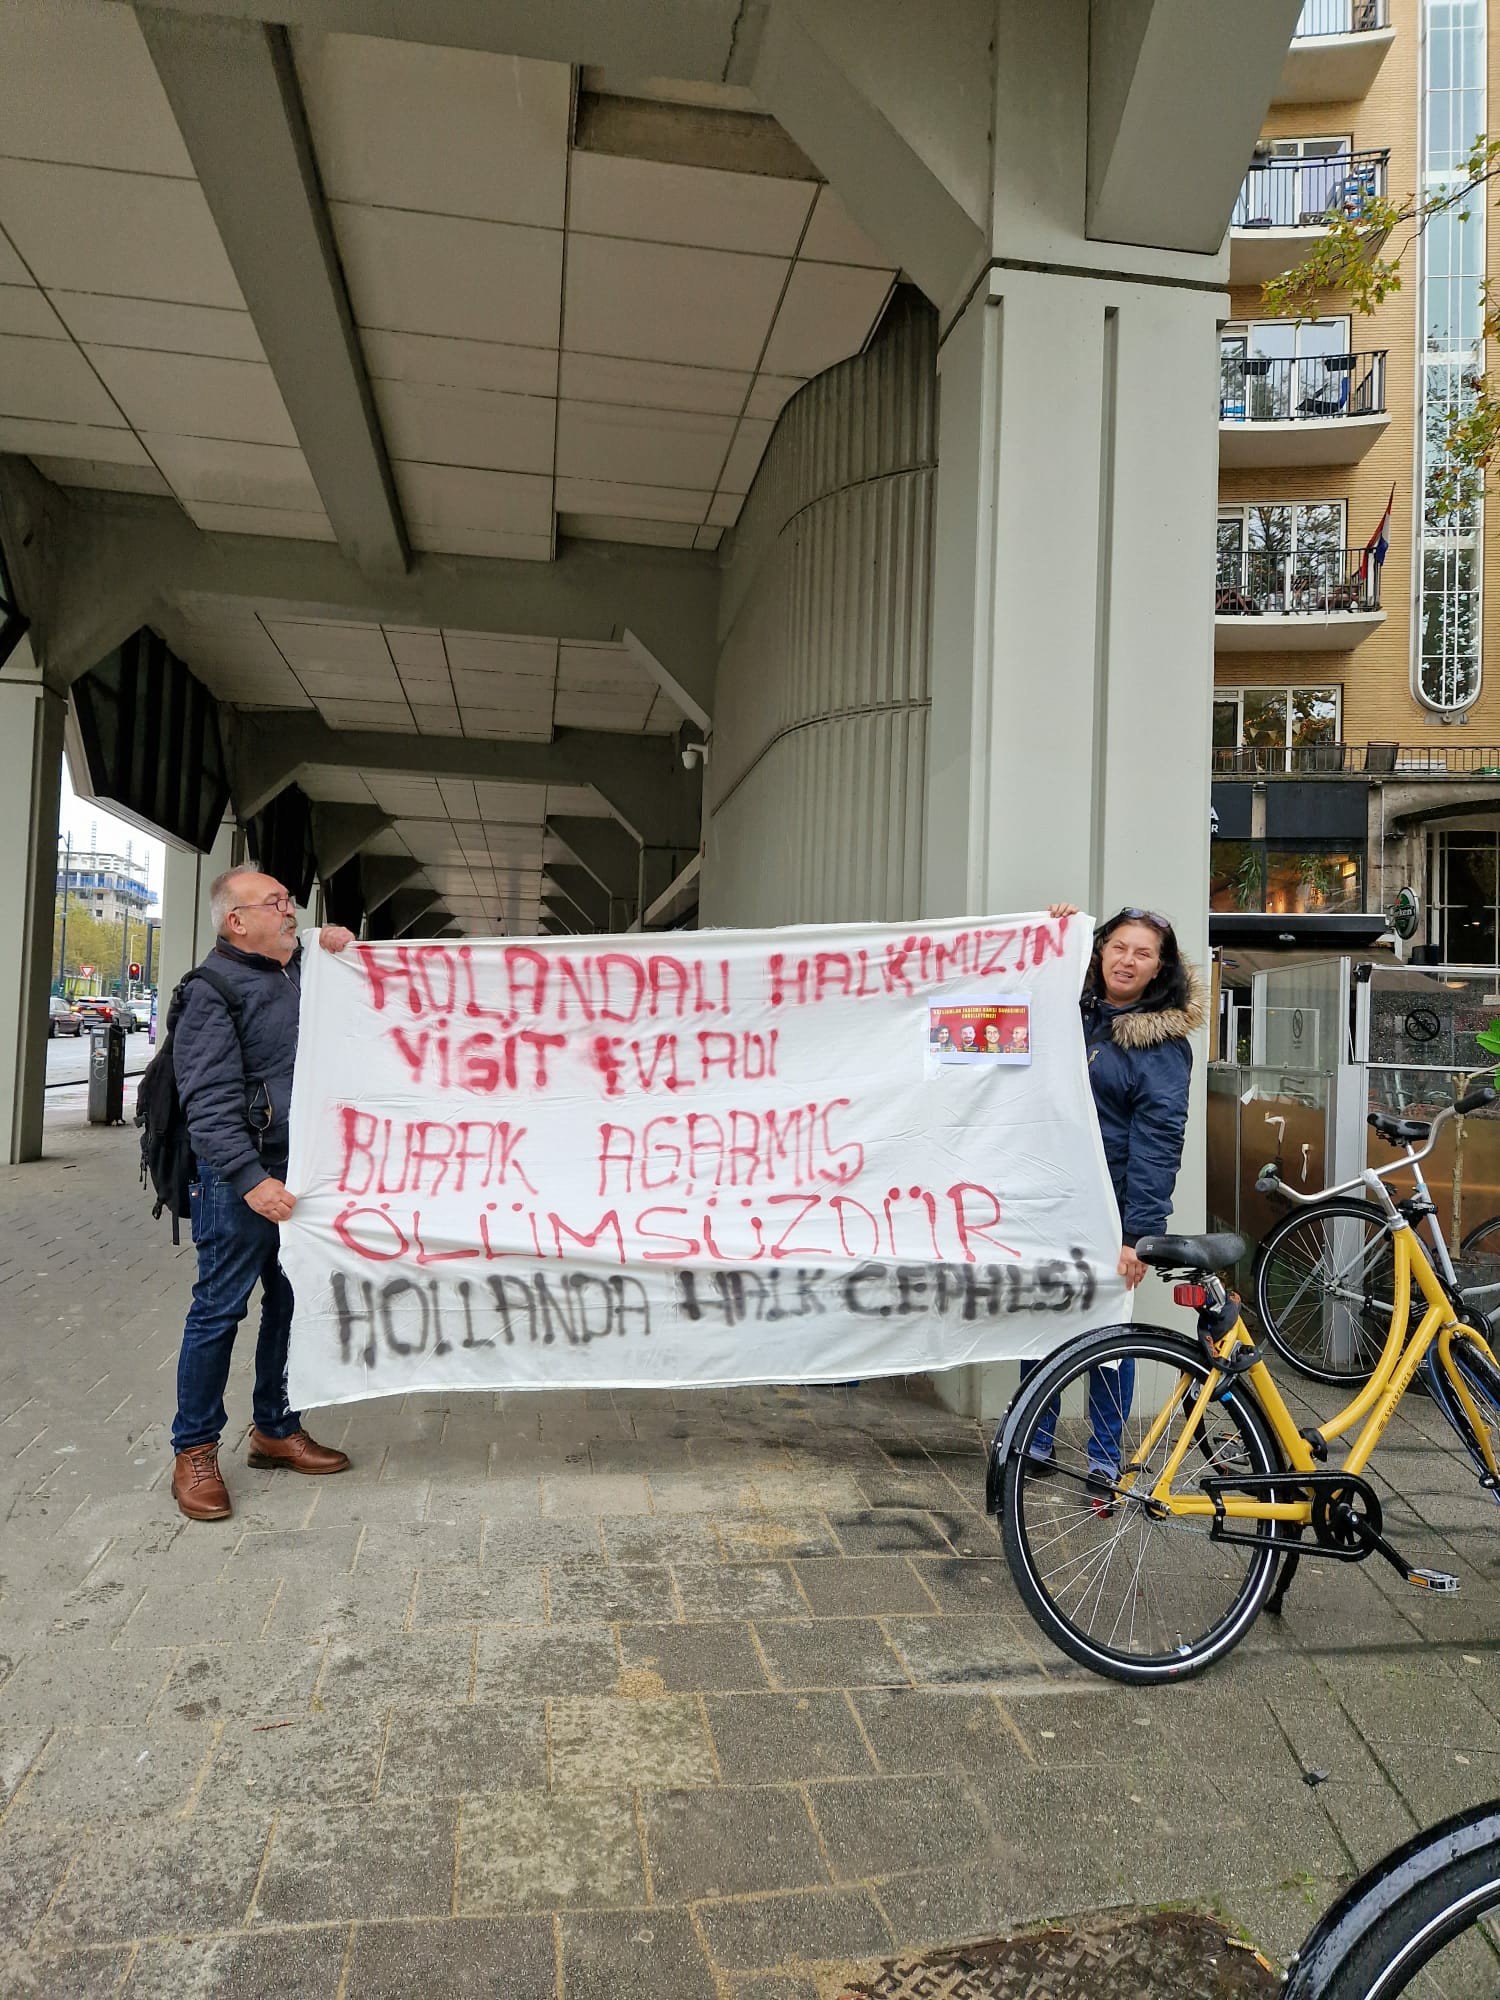 HOLANDALI HALKIMIZIN
YİĞİT EVLADI
BURAK AĞARMIŞ
ÖLÜMSÜZDÜR
HOLLANDA HALK CEPHESİ
SWAPFIETS